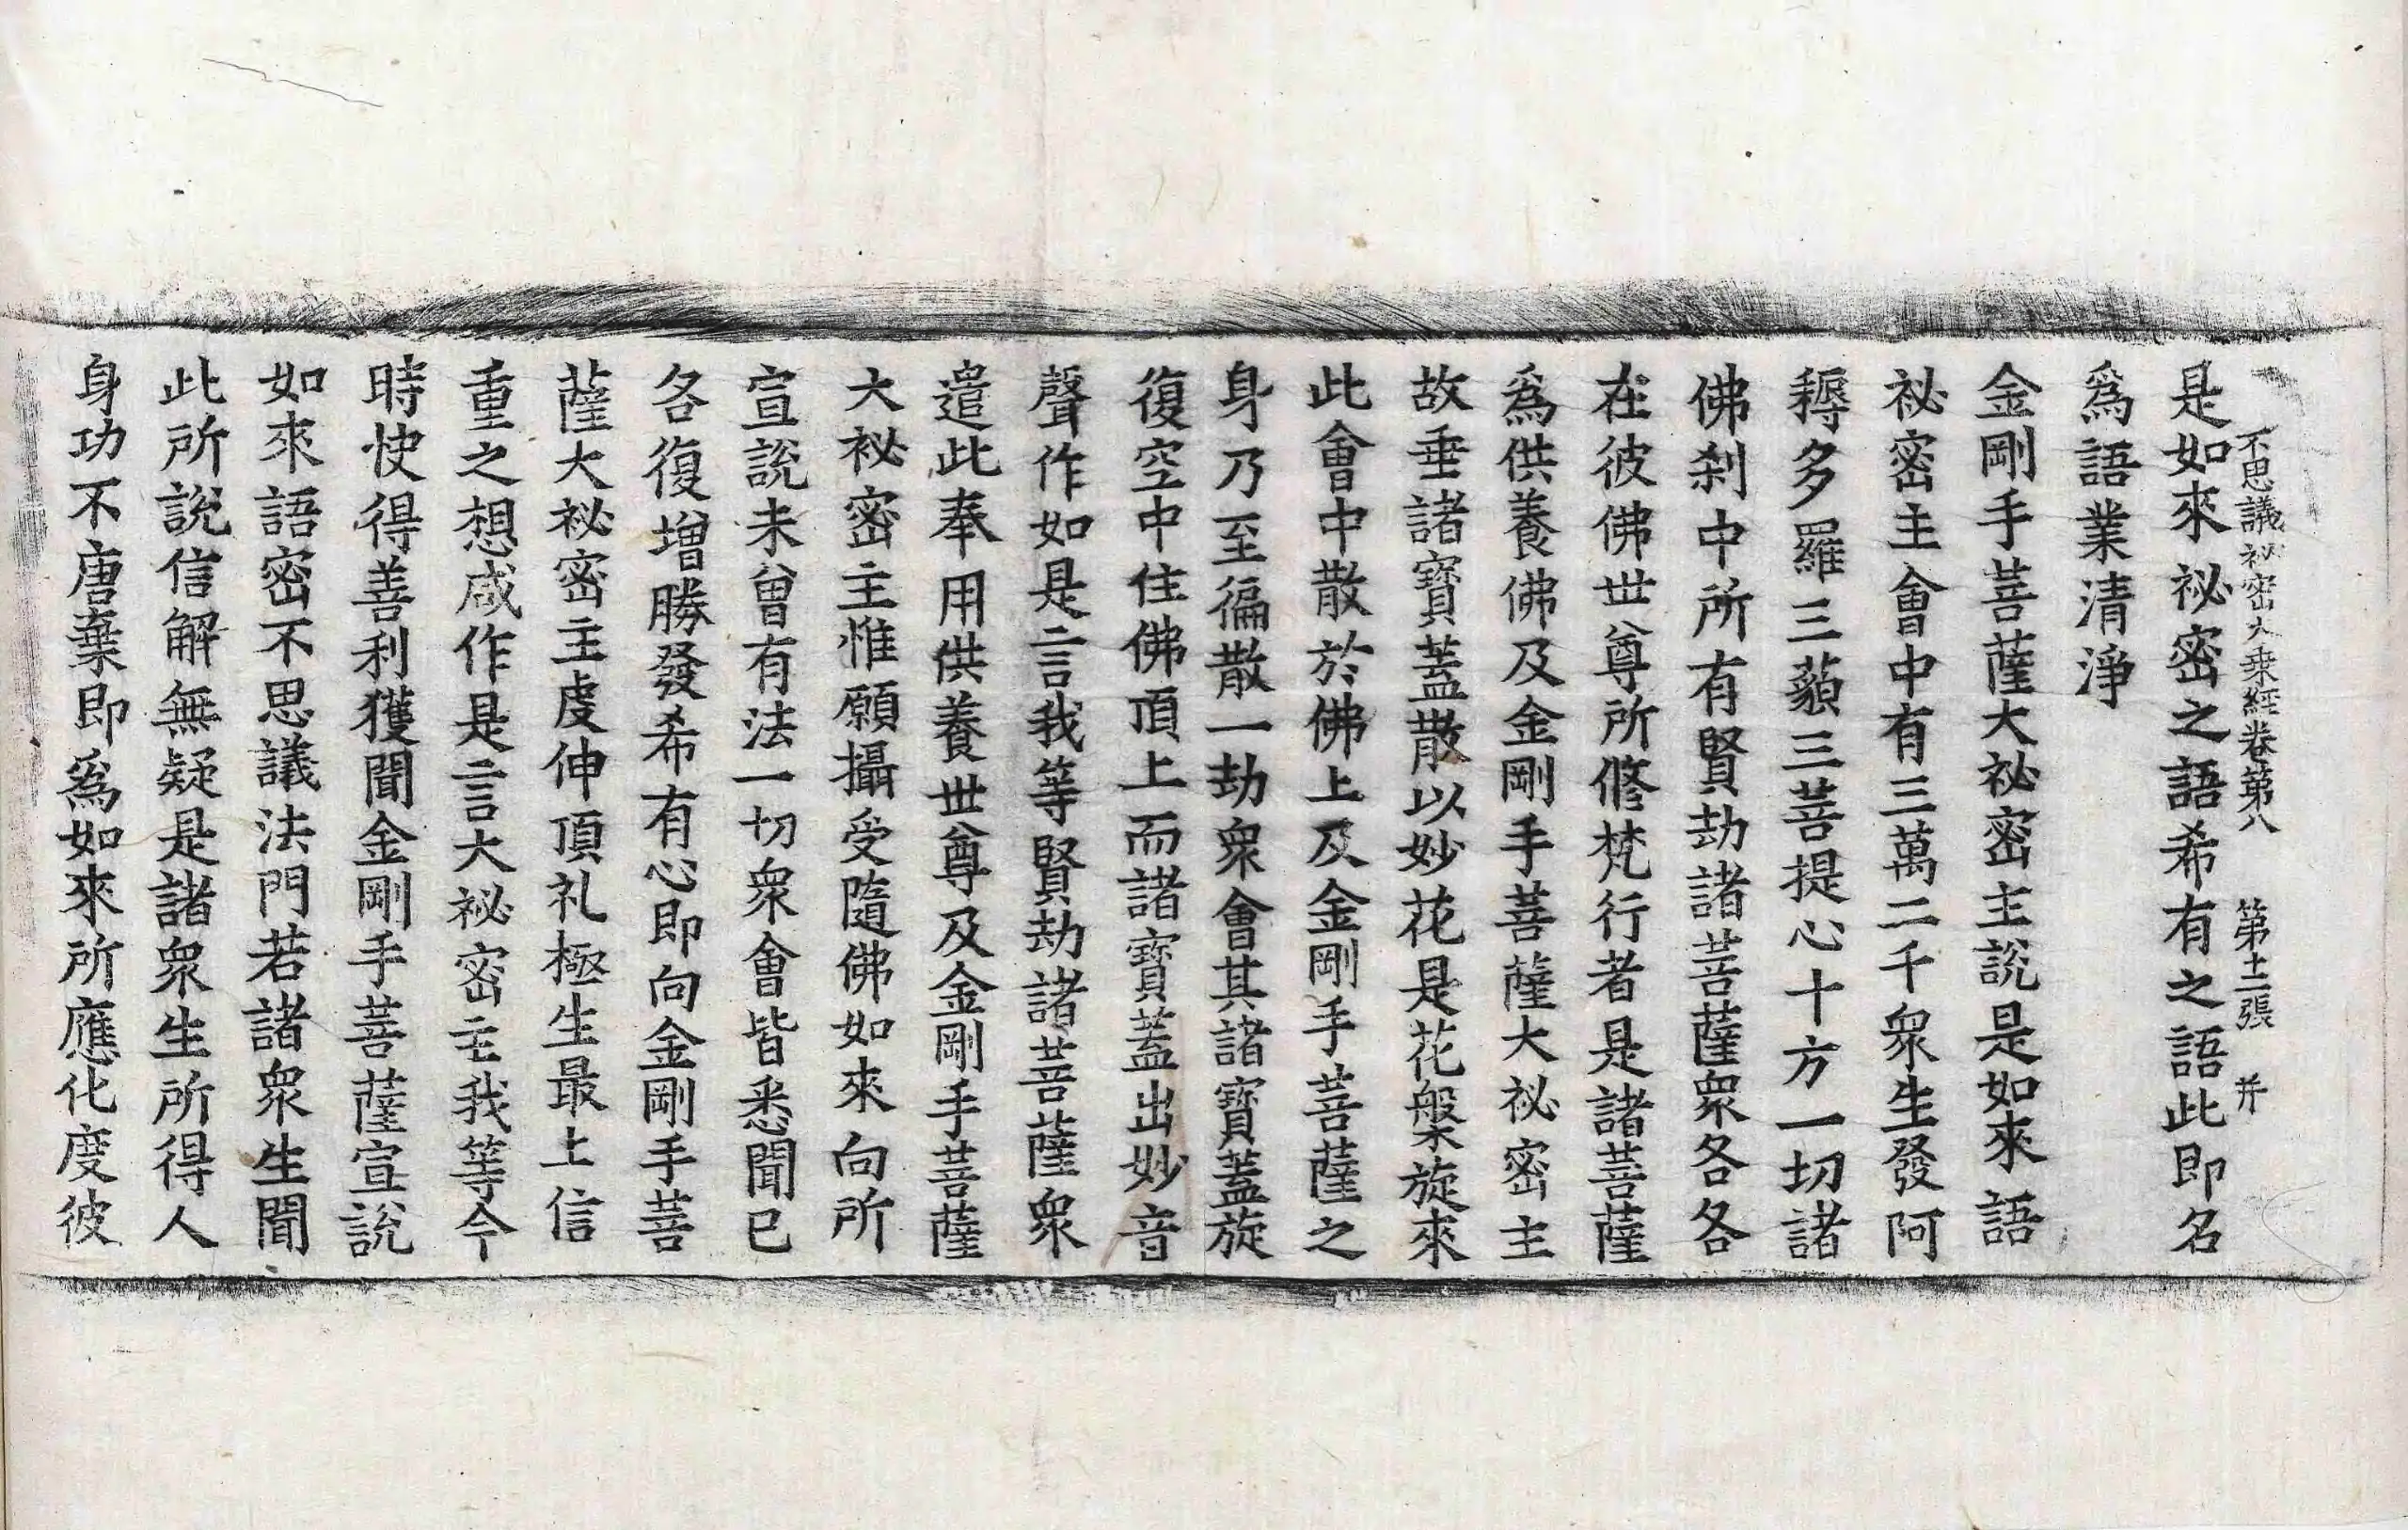 不思議祕密大乗經卷第八　第十二張　并
是如來祕密之語希有之語此即名
爲語業清淨
金剛手菩薩大祕密主說是如來語
祕密主會中有三萬二千衆生發阿
耨多羅三藐三菩提心十方一切諸
佛刹中所有賢劫諸菩薩衆各各
在彼佛世尊所修梵行者是諸菩薩
爲供養佛及金剛手菩薩大祕密主
故垂諸寶蓋散以妙花是花槃旋來
此會中散於佛上及金剛手菩薩之
身乃至徧散一劫衆會其諸寶蓋旋
復空中住佛頂上而諸寶蓋出妙音
聲作如是言我等賢劫諸菩薩衆
遣此奉用供養世尊及金剛手菩薩
大祕密主惟願攝受隨佛如來向所
宣說未曾有法一切衆會皆悉聞已
各復增勝發希有心即向金剛手菩
薩大祕密主虔伸頂礼極生最上信
重之想咸作是言大祕密主我等今
時快得善利獲聞金剛手菩薩宣說
如來語密不思議法門若諸衆生聞
此所說信解無疑是諸衆生所得人
身功不唐棄即爲如來所應化度彼